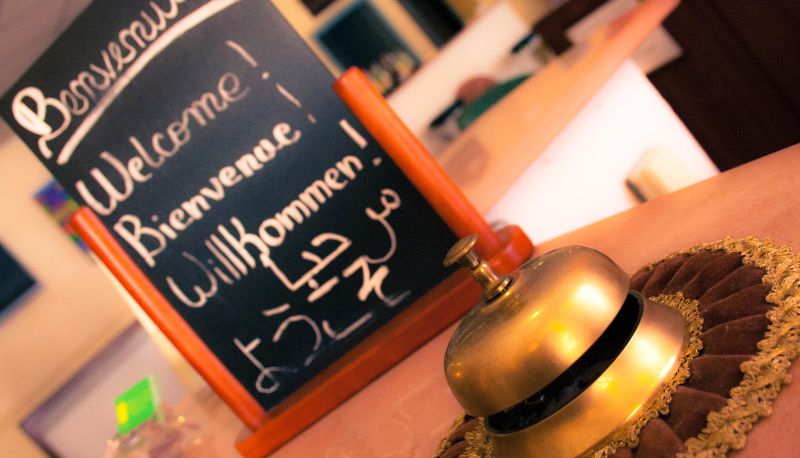 Benvenu
Welcome !
Bienvenue !
Willkommen !
مرحبا
ようこそ